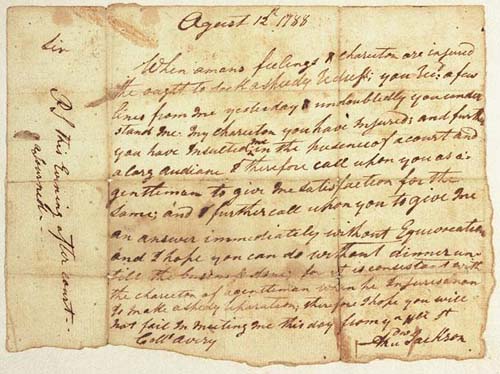 Agust 12th 1788
Sir
When amans feelings & charector are injured
he ought to seek aspeedy redress; you rec. a few
lines from me yesterday & undoubtedly you under
stand me. My charector you have Injured; and further
you have Insulted me in the presence of a court and
a larg audianc I therefore call upon you as a
gentleman to give me satisfaction for the
Same; and I further call upon you to give Me
an answer immediately without Equivocation
and I hope you can do without dinner un
till the business done; for it is consistant with
the charector of agentleman when he Injures aman
to make aspedy reparation; therefore I hope you will
not fail in meeting me this day from yr Hbl st
Andw Jackson
Coll. Avery
PS this Evening after court